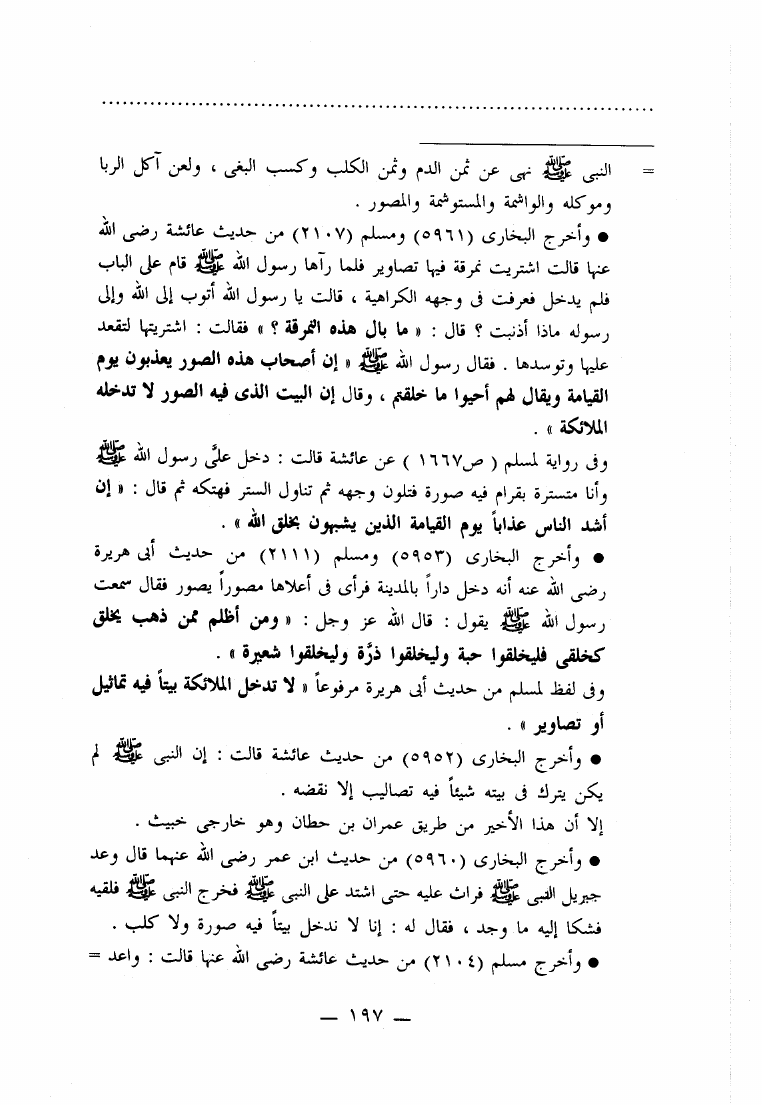 ................................................................................
= النبى ﷺ نهى عن ثمن الدم وثمن الكلب وكسب البغى ، ولعن آكل الربا
وموكله والواشمة والمستوشمة والمصور .
● وأخرج البخارى (٥٩٦١) ومسلم (٢١٠٧) من حديث عائشة رضى الله
عنها قالت اشتريت نمرقة فيها تصاوير فلما رآها رسول الله ﷺ قام على الباب
فلم يدخل فعرفت فى وجهه الكراهية ، قالت يا رسول الله أتوب إلى الله وإلى
رسوله ماذا أذنبت ؟ قال : « ما بال هذه النمرقة ؟ » فقالت : اشتريتها لتقعد
عليها وتوسدها . فقال رسول الله ﷺ « إن أصحاب هذه الصور يعذبون يوم
القيامة ويقال لهم أحيوا ما خلقتم ، وقال إن البيت الذى فيه الصور لا تدخله
الملائكة » .
وفى رواية لمسلم ( ص١٦٦٧ ) عن عائشة قالت : دخل علىَّ رسول الله ﷺ
وأنا متسترة بقرام فيه صورة فتلون وجهه ثم تناول الستر فهتكه ثم قال : « إن
أشد الناس عذاباً يوم القيامة الذين يشبهون بخلق الله » .
● وأخرج البخارى (٥٩٥٣) ومسلم (٢١١١) من حديث أبى هريرة
رضى الله عنه أنه دخل داراً بالمدينة فرأى فى أعلاها مصوراً يصور فقال سمعت
رسول الله ﷺ يقول : قال الله عز وجل : « ومن أظلم ممن ذهب يخلق
كخلقى فليخلقوا حبة وليخلقوا ذرَّة وليخلقوا شعيرة » .
وفى لفظ لمسلم من حديث أبى هريرة مرفوعاً « لا تدخل الملائكة بيتاً فيه تماثيل
أو تصاوير » .
● وأخرج البخارى (٥٩٥٢) من حديث عائشة قالت : إن النبى ﷺ لم
يكن يترك فى بيته شيئاً فيه تصاليب إلا نقضه .
إلا أن هذا الأخير من طريق عمران بن حطان وهو خارجى خبيث .
● وأخرج البخارى (٥٩٦٠) من حديث ابن عمر رضى الله عنهما قال وعد
جبريل النبى ﷺ فراث عليه حتى اشتد على النبى ﷺ فخرج النبى ﷺ فلقيه
فشكا إليه ما وجد ، فقال له : إنا لا ندخل بيتاً فيه صورة ولا كلب .
● وأخرج مسلم (٢١٠٤) من حديث عائشة رضى الله عنها قالت : واعد =
— ١٩٧ —